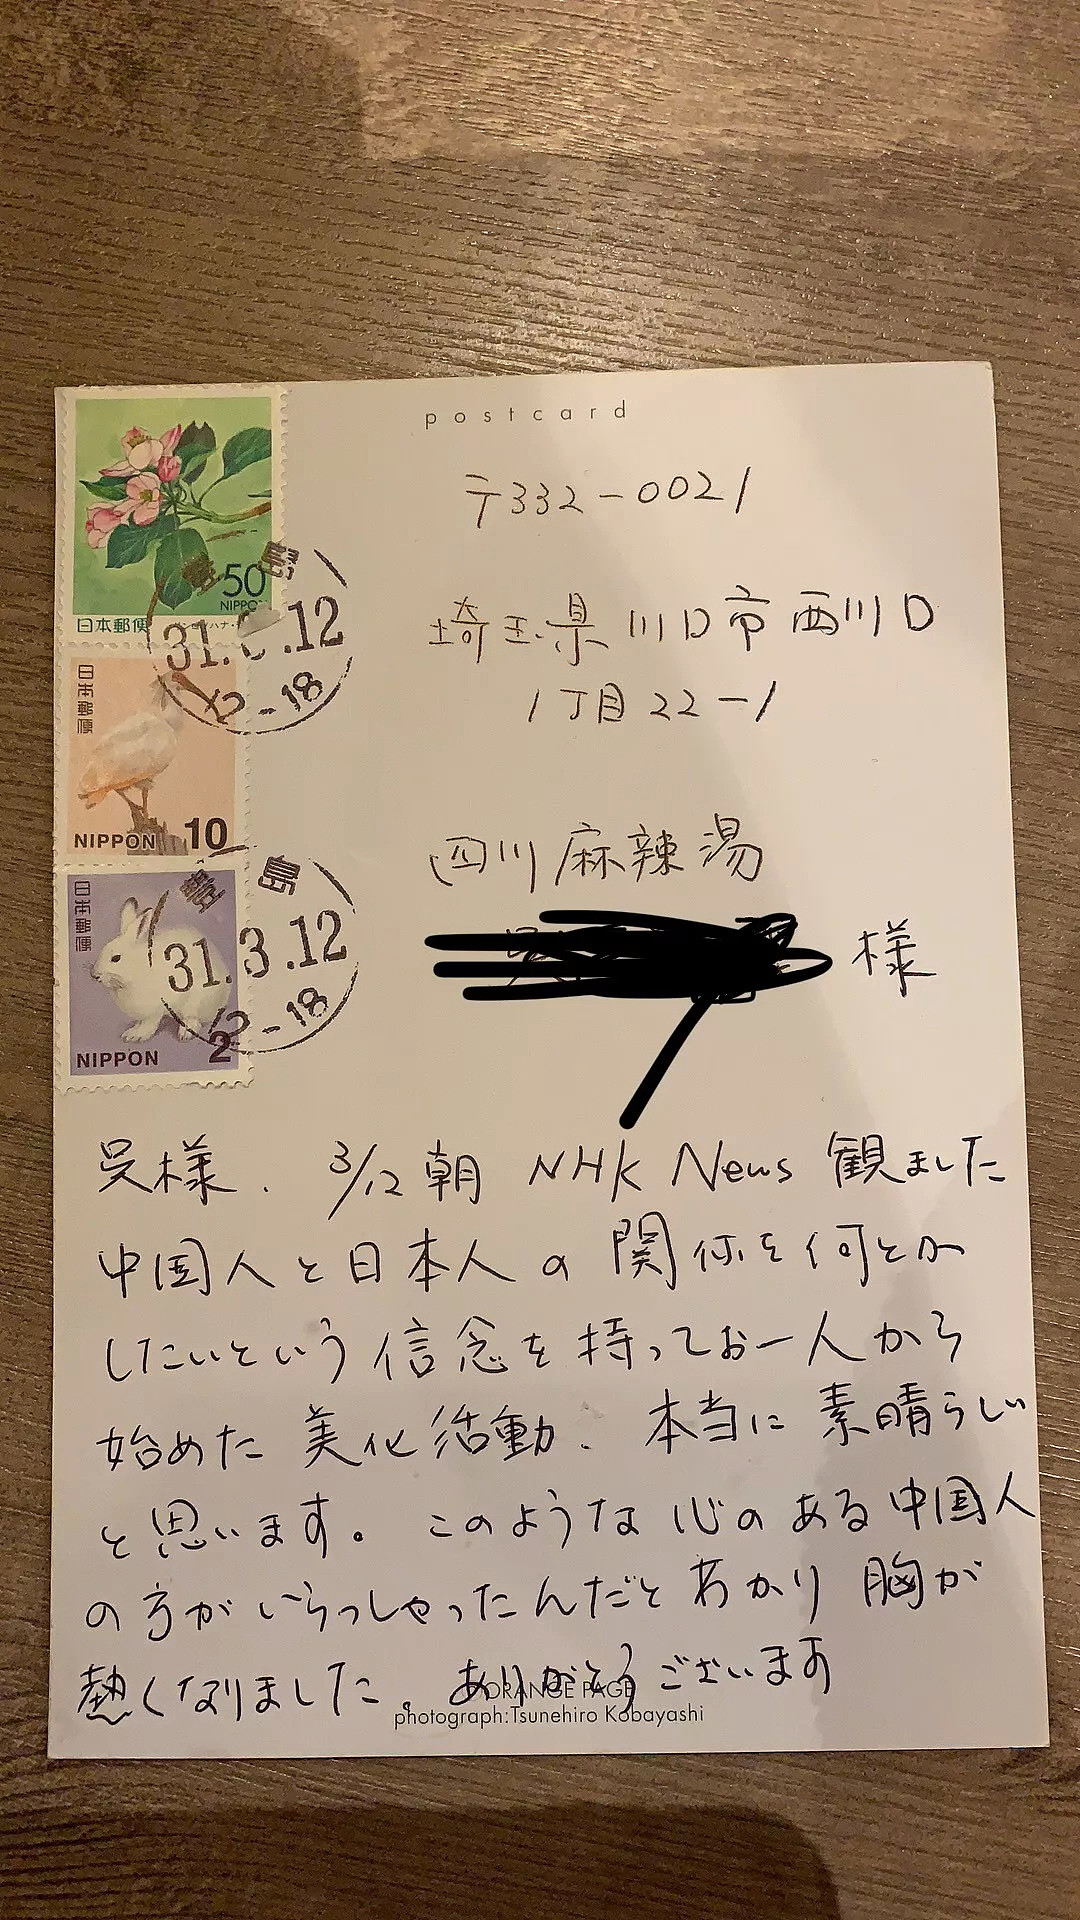 postcard
〒332-0021
埼玉県川口市西川口
1丁目22-1
四川麻辣湯
様
50
NIPPON
日本郵便
豊島
31. .12
12-18
日本郵便
NIPPON 10
日本郵便
豊島
31.3.12
12-18
NIPPON 2
呉様、3/12朝 NHK News 観ました
中国人と日本人の関係を何とか
したいという信念を持ってお一人から
始めた美化活動、本当に素晴らしい
と思います。このような心のある中国人
の方がいらっしゃったんだとわかり胸が
熱くなりました。ありがとうございます
ORANGE PAGE
photograph:Tsunehiro Kobayashi